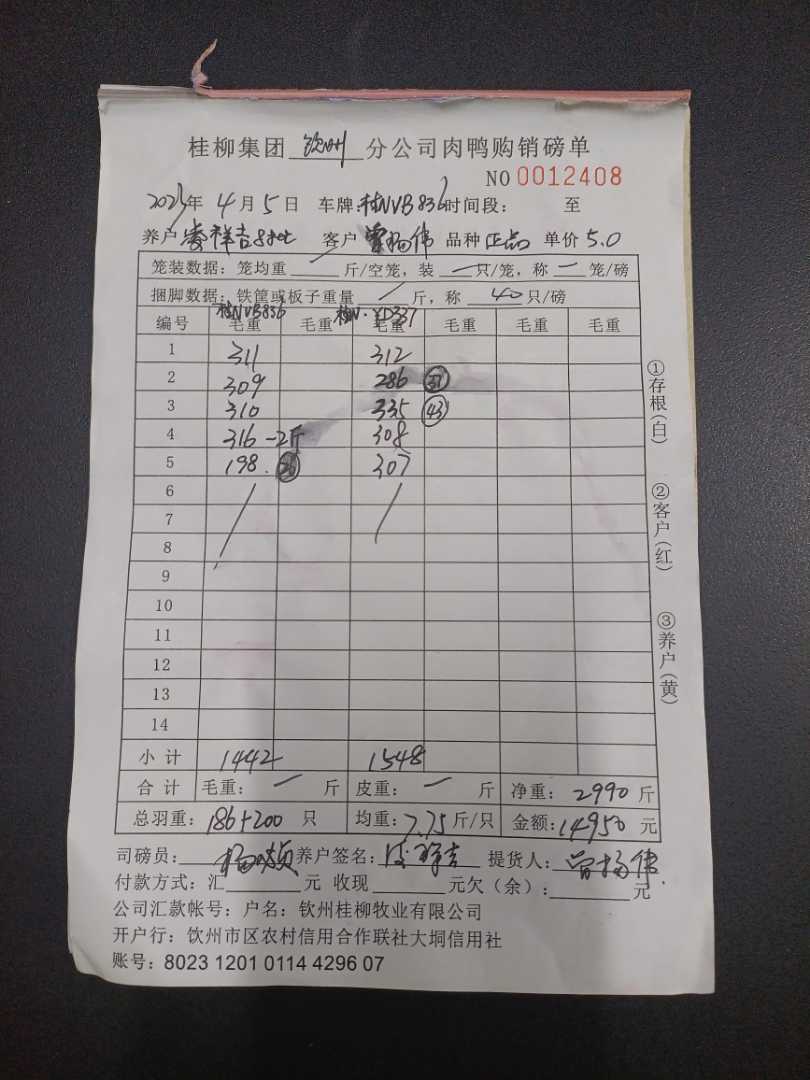 桂柳集团 钦州 分公司肉鸭购销磅单
NO 0012408
2023年 4月 5日 车牌:桂NVB836 时间段: 至
养户 祥吉 客户 曾杨伟 品种 正品 单价 5.0
笼装数据: 笼均重 / 斤/空笼, 装 一 只/笼, 称 一 笼/磅
捆脚数据: 铁筐或板子重量 / 斤, 称 40 只/磅
桂NVB836 桂N·YD337
编号 毛重 毛重 毛重 毛重 毛重 毛重
1 311 312
2 309 286 31
3 310 335 43
4 316-2斤 308
5 198. 26 307
6
7
8
9
10
11
12
13
14
小计 1442 1548
合计 毛重: 一 斤 皮重: 一 斤 净重: 2990 斤
总羽重: 186+200 只 均重: 7.75 斤/只 金额: 14950 元
司磅员: 养户签名: 祥吉 提货人: 曾杨伟
付款方式: 汇 元 收现 元欠(余): 元
公司汇款帐号: 户名: 钦州桂柳牧业有限公司
开户行: 饮州市区农村信用合作联社大垌信用社
账号: 8023 1201 0114 4296 07
①存根(白)
②客户(红)
③养户(黄)